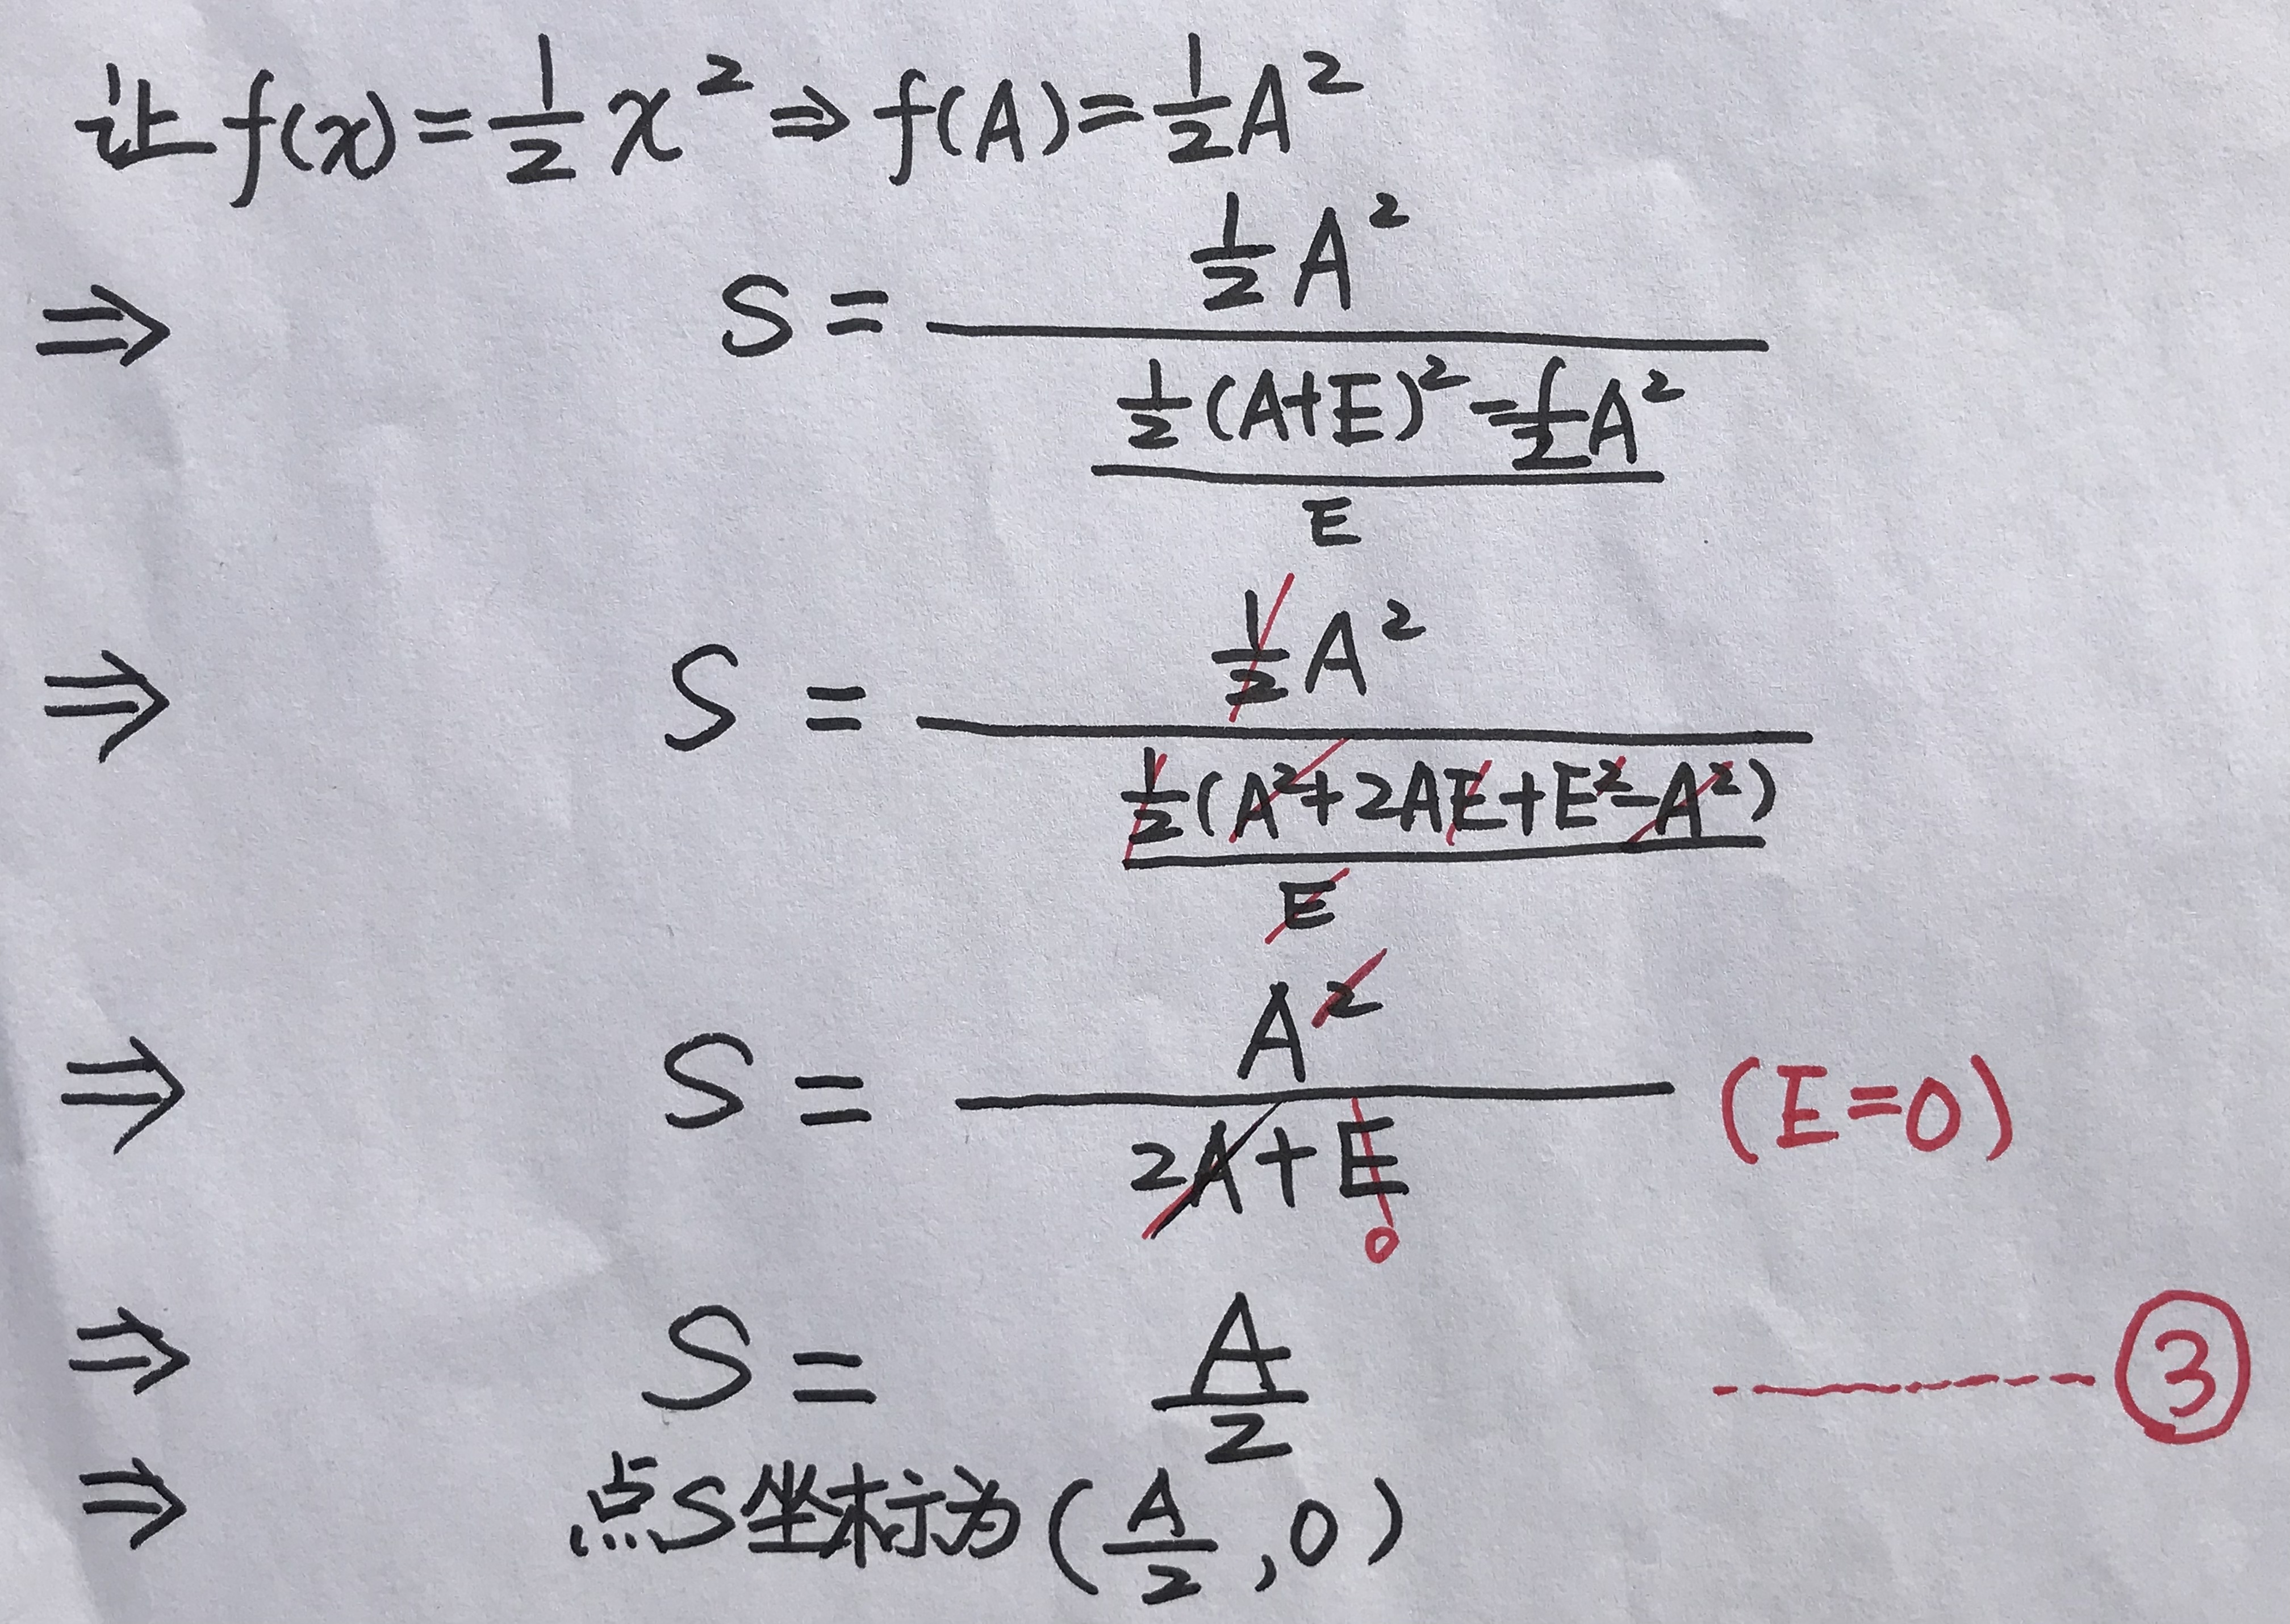 让 f(x) = 1/2 x² ⇒ f(A) = 1/2 A²
⇒ S = (1/2 A²) / ((1/2 (A+E)² - 1/2 A²) / E)
⇒ S = (1/2 A²) / ((1/2 (A² + 2AE + E² - A²)) / E)
⇒ S = A² / (2A + E) (E=0)
0
⇒ S = A/2 ------③
⇒ 点S坐标为 (A/2, 0)